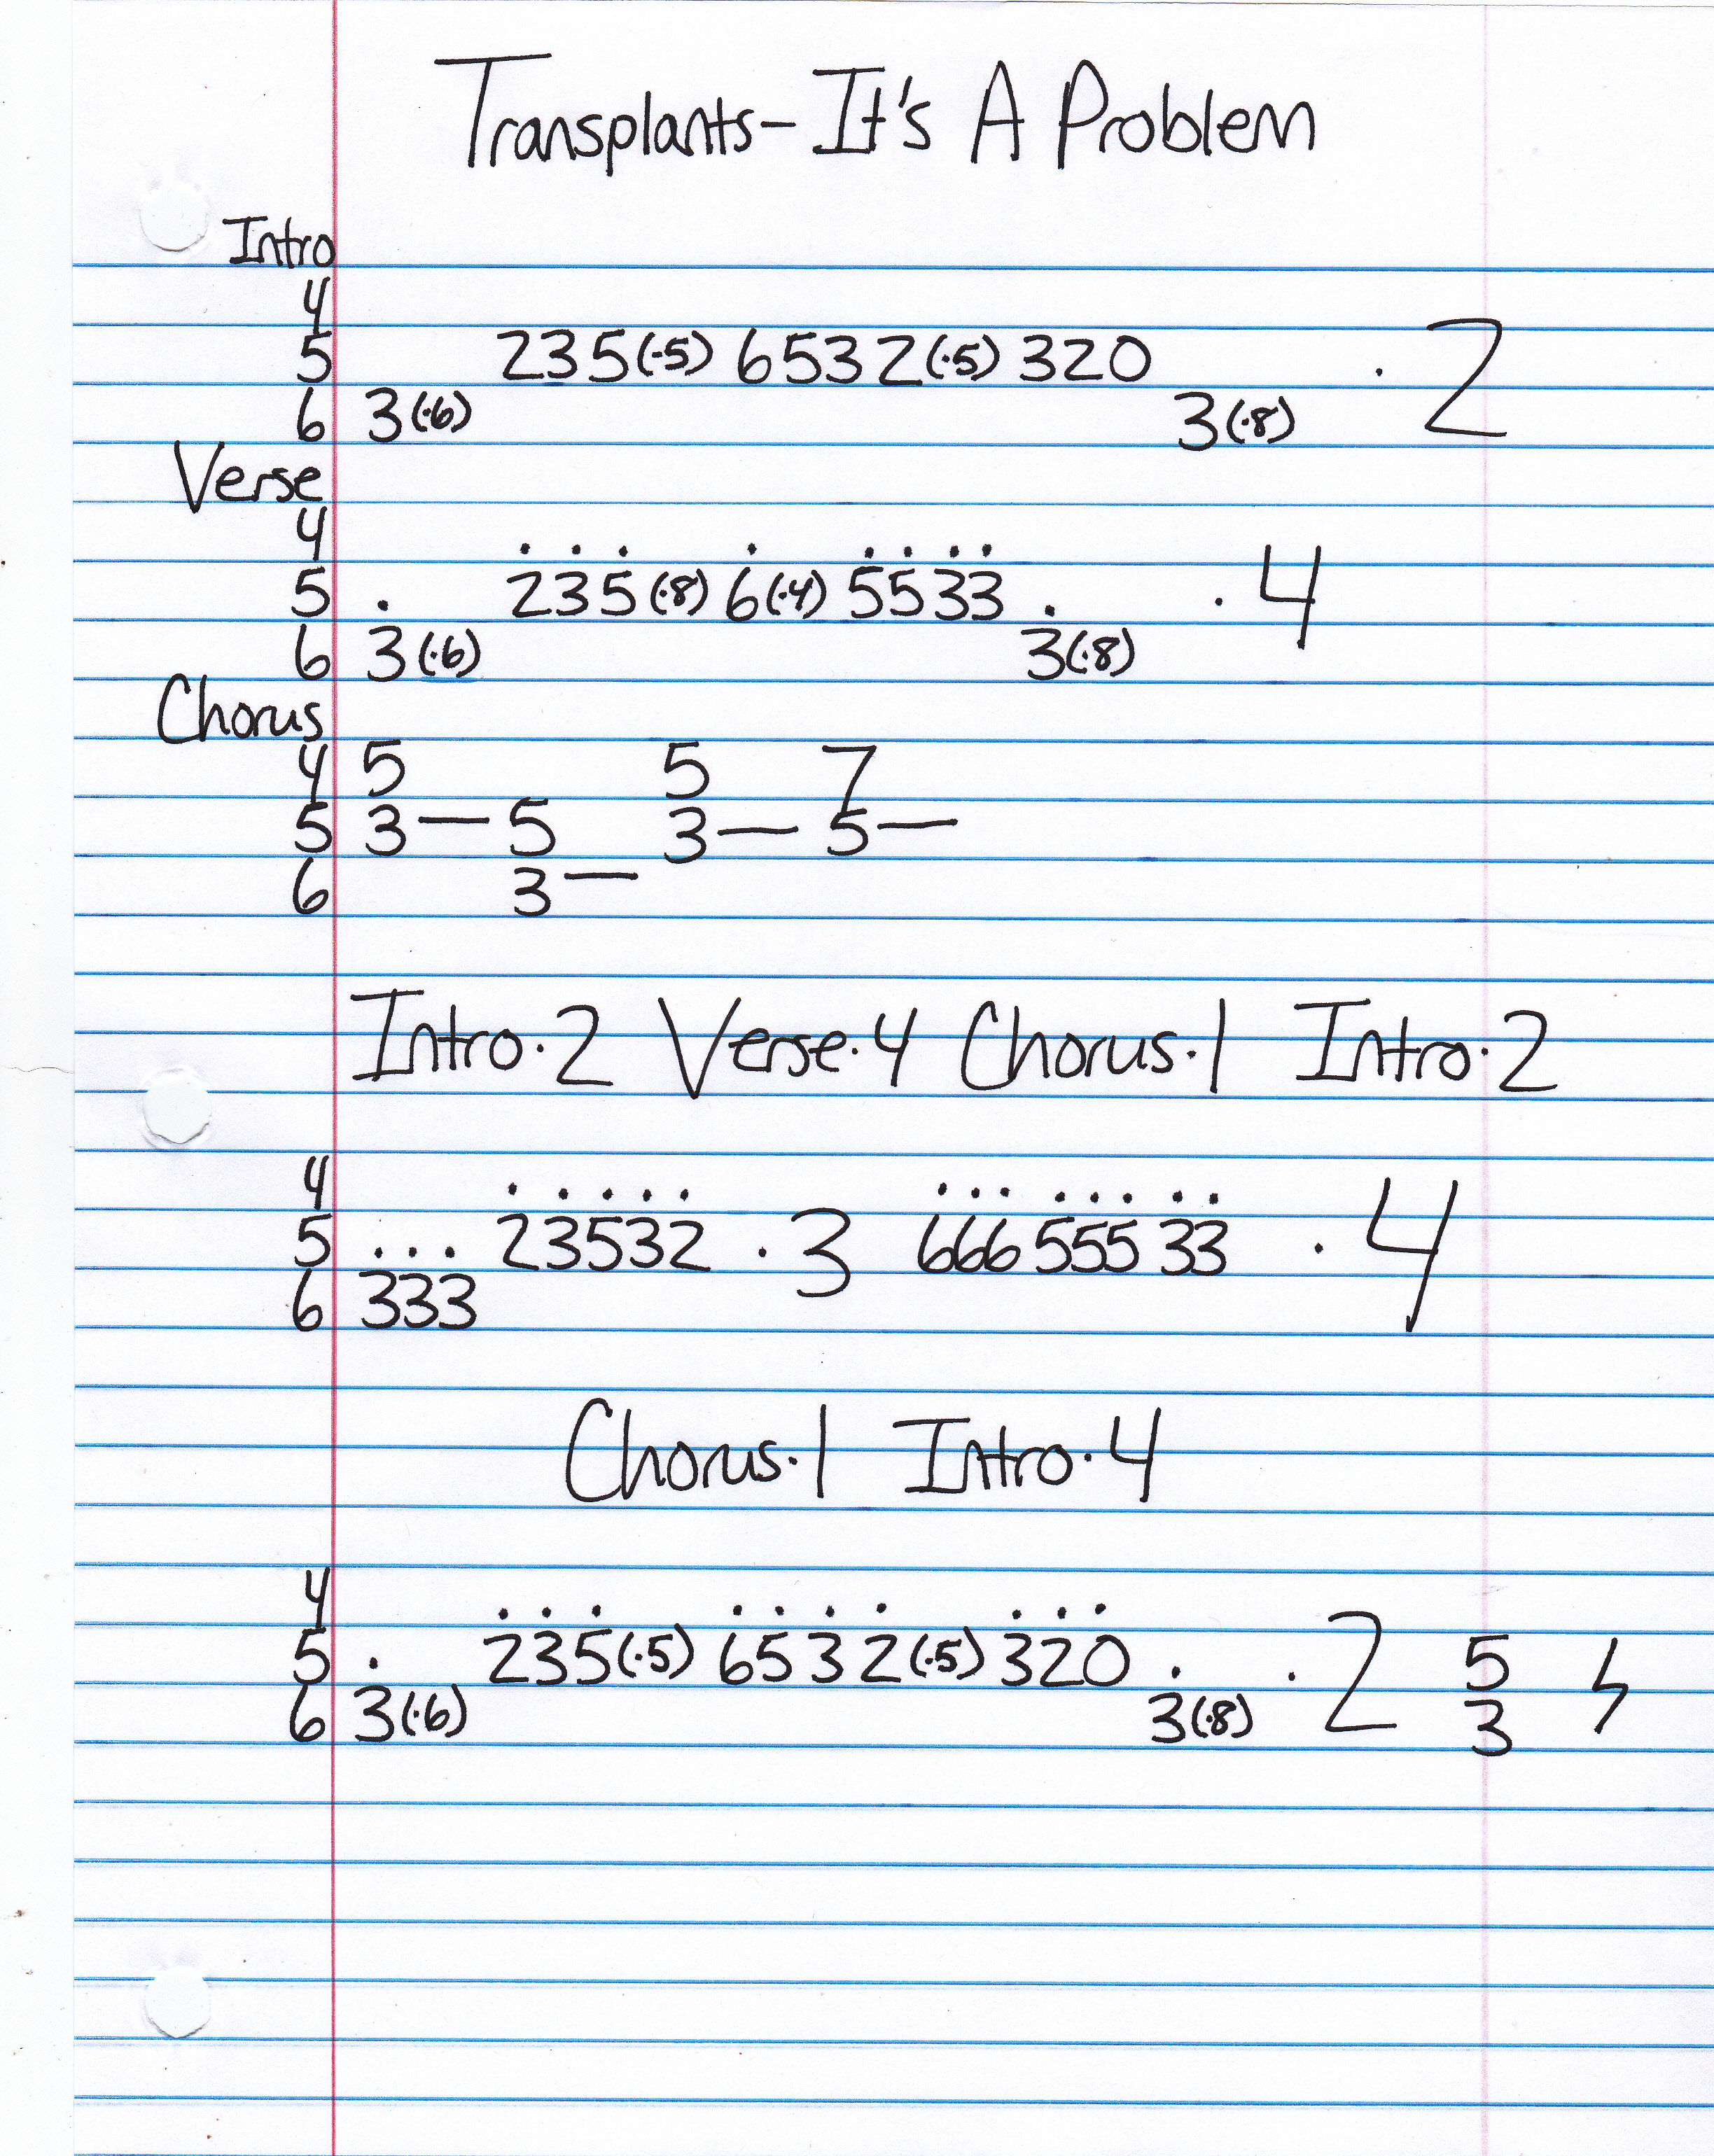 Transplants - It's A Problem
Intro
4
5 235(·5) 6532(·5) 320 · 2
6 3(·6) 3(·8)
Verse
4 . . . . . . . .
5 . 235(·8) 6(·4) 5533 . · 4
6 3(·6) 3(·8)
Chorus
4 5 5 7
5 3— 5 3— 5—
6 3—
Intro·2 Verse·4 Chorus·1 Intro·2
4 . . . . . . . . . . . . .
5 ... 23532 · 3 666 555 33 · 4
6 333
Chorus·1 Intro·4
4 . . . . . . . . . .
5 . 235(·5) 6532(·5) 320 . · 2 5
6 3(·6) 3(·8) 3